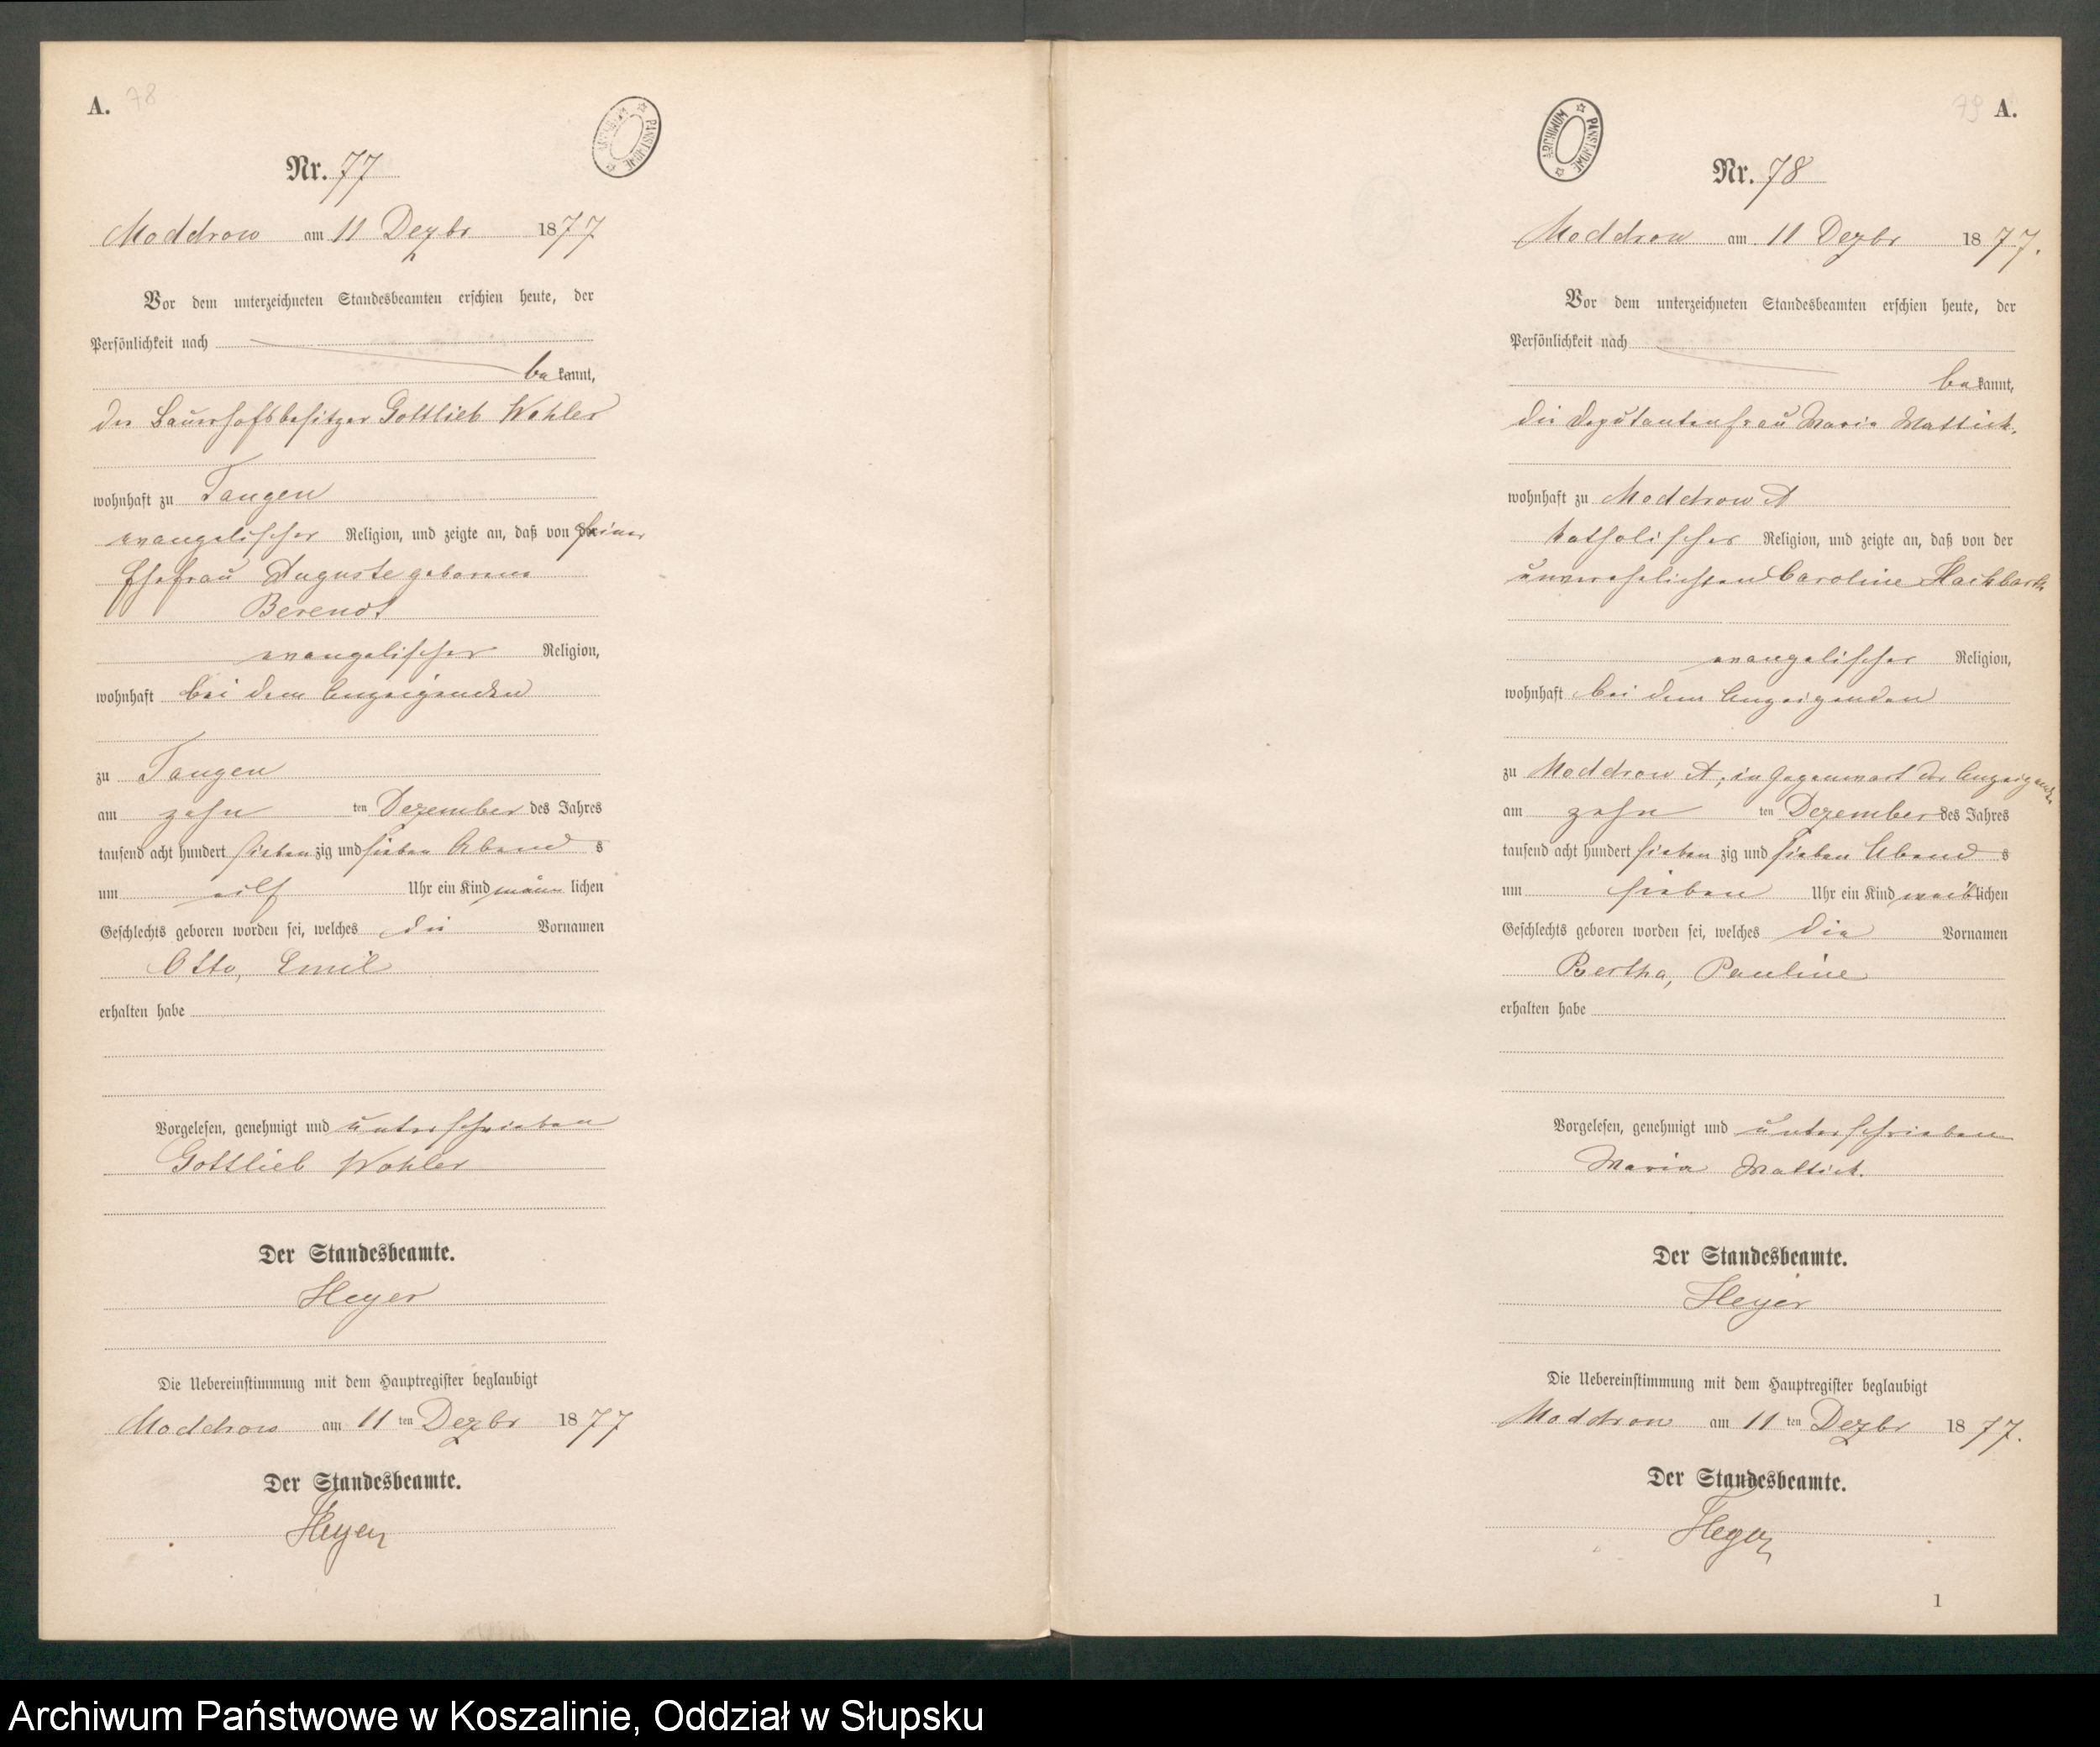 A. 78
ARCHIWUM PAŃSTWOWE
Nr. 77
Moddrow am 11 Dezbr 1877
Vor dem unterzeichneten Standesbeamten erschien heute, der
Persönlichkeit nach
bekannt,
der Bauerhofsbesitzer Gottlieb Wohler
wohnhaft zu Tangen
evangelischer Religion, und zeigte an, daß von seiner
Ehefrau Auguste geborene
Berendt
evangelischer Religion,
wohnhaft bei dem Anzeigenden
zu Tangen
am zehn ten Dezember des Jahres
tausend acht hundert siebenzig und sieben Abends
um eilf Uhr ein Kind männlichen
Geschlechts geboren worden sei, welches die Vornamen
Otto, Emil
erhalten habe
Vorgelesen, genehmigt und unterschrieben
Gottlieb Wohler
Der Standesbeamte.
Heyer
Die Uebereinstimmung mit dem Hauptregister beglaubigt
Moddrow am 11 ten Dezbr 1877
Der Standesbeamte.
Heyer
79 A.
ARCHIWUM PAŃSTWOWE
Nr. 78
Moddrow am 11 Dezbr 1877.
Vor dem unterzeichneten Standesbeamten erschien heute, der
Persönlichkeit nach
bekannt,
die Deputantenfrau Maria Mattick.
wohnhaft zu Moddrow A
katholischer Religion, und zeigte an, daß von der
unverehelichten Caroline Hackbarth
evangelischer Religion,
wohnhaft bei dem Anzeigenden
zu Moddrow A, in Gegenwart der Anzeigende
am zehn ten Dezember des Jahres
tausend acht hundert siebenzig und sieben Abends
um sieben Uhr ein Kind weiblichen
Geschlechts geboren worden sei, welches die Vornamen
Bertha, Pauline
erhalten habe
Vorgelesen, genehmigt und unterschrieben
Maria Mattick.
Der Standesbeamte.
Heyer
Die Uebereinstimmung mit dem Hauptregister beglaubigt
Moddrow am 11 ten Dezbr 1877.
Der Standesbeamte.
Heyer
1
Archiwum Państwowe w Koszalinie, Oddział w Słupsku